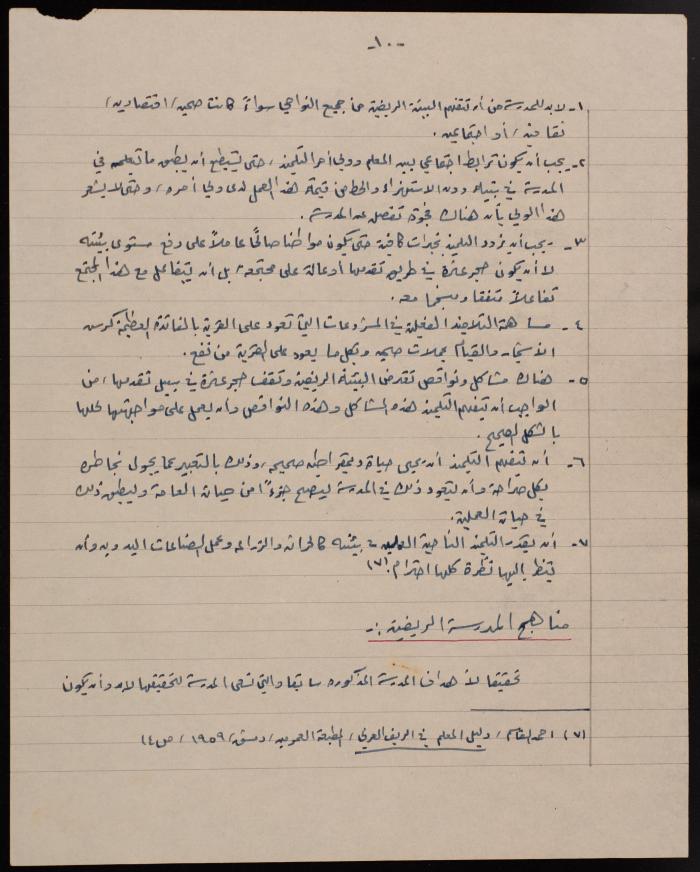 -١٠-
١- لابد للمدرسة من أن تتفهم البيئة الريفية من جميع النواحي سواءً كانت صحية، اقتصادية،
ثقافية، أو اجتماعية.
٢- يجب أن يكون ترابط اجتماعي بين المعلم وولي أمر التلميذ، حتى يستطيع أن يطبق ما تعلمه في
المدرسة في بيته دون الاستهزاء والحط من قيمة هذا العمل لدى ولي أمره، وحتى لا يشعر
هذا الولي بأن هناك فجوة تفصله عن المدرسة.
٣- يجب أن يزود التلميذ بخبرات كافية حتى يكون مواطناً صالحاً عاملاً على رفع مستوى بيئته
لا أن يكون حجر عثرة في طريق تقدمها أو عالة على مجتمعه، بل أن يتفاعل مع هذا المجتمع
تفاعلاً متفقا ومنسجما معه.
٤- مساهمة التلاميذ الفعلية في المشروعات التي تعود على القرية بالفائدة العظيمة كغرس
الأشجار والقيام بحملات صحية وبكل ما يعود على القرية من نفع.
٥- هناك مشاكل ونواقص تعترض البيئة الريفية وتقف حجر عثرة في سبيل تقدمها، من
الواجب أن يتفهم التلميذ هذه المشاكل وهذه النواقص وأن يعمل على مواجهتها وحلها
بالشكل الصحيح.
٦- أن يتفهم التلميذ أن يحيى حياة ديمقراطية صحيحة، وذلك بالتعبير عما يجول بخاطره
بكل صراحة وأن يتعود ذلك في المدرسة ليصبح جزءاً من حياته العامة وليطبق ذلك
في حياته العملية.
٧- أن يقدر التلميذ الناحية في بيئته كالحراثة والزراعة وعمل الصناعات اليدوية وأن
ينظر إليها نظرة كلها احترام.(٧)
مناهج المدرسة الريفية :-
تحقيقا لأهداف المدرسة المذكورة سابقا والتي تسعى المدرسة لتحقيقها لابد وأن يكون
(٧) احمد القاسم، دليل المعلم في الريف العربي، المطبعة العمومية، دمشق، ١٩٥٩، ص ١٤